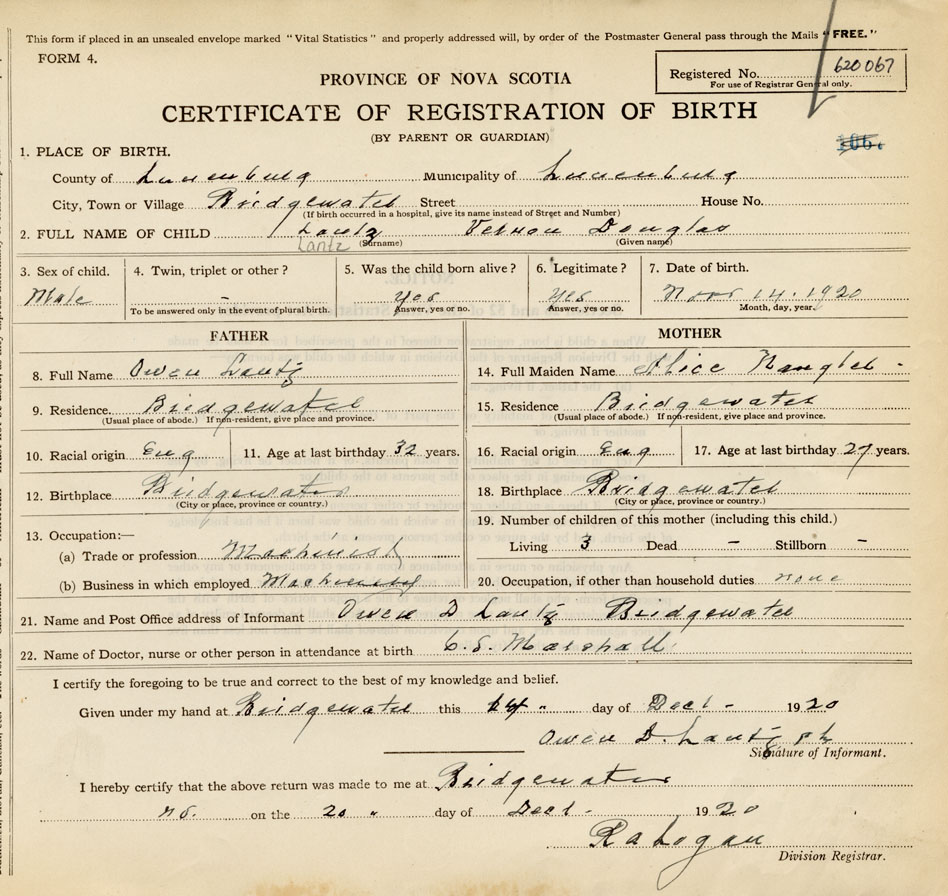 This form if placed in an unsealed envelope marked "Vital Statistics" and properly addressed will, by order of the Postmaster General pass through the Mails "FREE."
FORM 4.
Registered No. 620067
For use of Registrar General only.
PROVINCE OF NOVA SCOTIA
CERTIFICATE OF REGISTRATION OF BIRTH
(BY PARENT OR GUARDIAN)
106.
1. PLACE OF BIRTH.
County of Lunenburg Municipality of Lunenburg
City, Town or Village Bridgewater Street House No.
(If birth occurred in a hospital, give its name instead of Street and Number)
2. FULL NAME OF CHILD Lantz Vernon Douglas
Lantz (Surname) (Given name)
3. Sex of child. 4. Twin, triplet or other? 5. Was the child born alive? 6. Legitimate? 7. Date of birth.
Male - Yes Yes Nov 14. 1920
To be answered only in the event of plural birth. Answer, yes or no. Answer, yes or no. Month, day, year.
FATHER MOTHER
8. Full Name Owen Lantz 14. Full Maiden Name Alice
9. Residence. Bridgewater 15. Residence Bridgewater
(Usual place of abode.) If non-resident, give place and province. (Usual place of abode.) If non-resident, give place and province.
10. Racial origin Eng 11. Age at last birthday 32 years. 16. Racial origin Eng 17. Age at last birthday 27 years.
12. Birthplace Bridgewater 18. Birthplace Bridgewater
(City or place, province or country.) (City or place, province or country.)
19. Number of children of this mother (including this child.)
13. Occupation:—
(a) Trade or profession Machinist Living 3 Dead - Stillborn -
(b) Business in which employed Machinist 20. Occupation, if other than household duties none
21. Name and Post Office address of Informant Owen D Lantz Bridgewater
22. Name of Doctor, nurse or other person in attendance at birth C. S. Marshall
I certify the foregoing to be true and correct to the best of my knowledge and belief.
Given under my hand at Bridgewater this 14 " day of Dect - 1920
Owen D. Lantz
Signature of Informant.
I hereby certify that the above return was made to me at Bridgewater
NS. on the 20 " day of Dect - 1920
Ra Logan
Division Registrar.